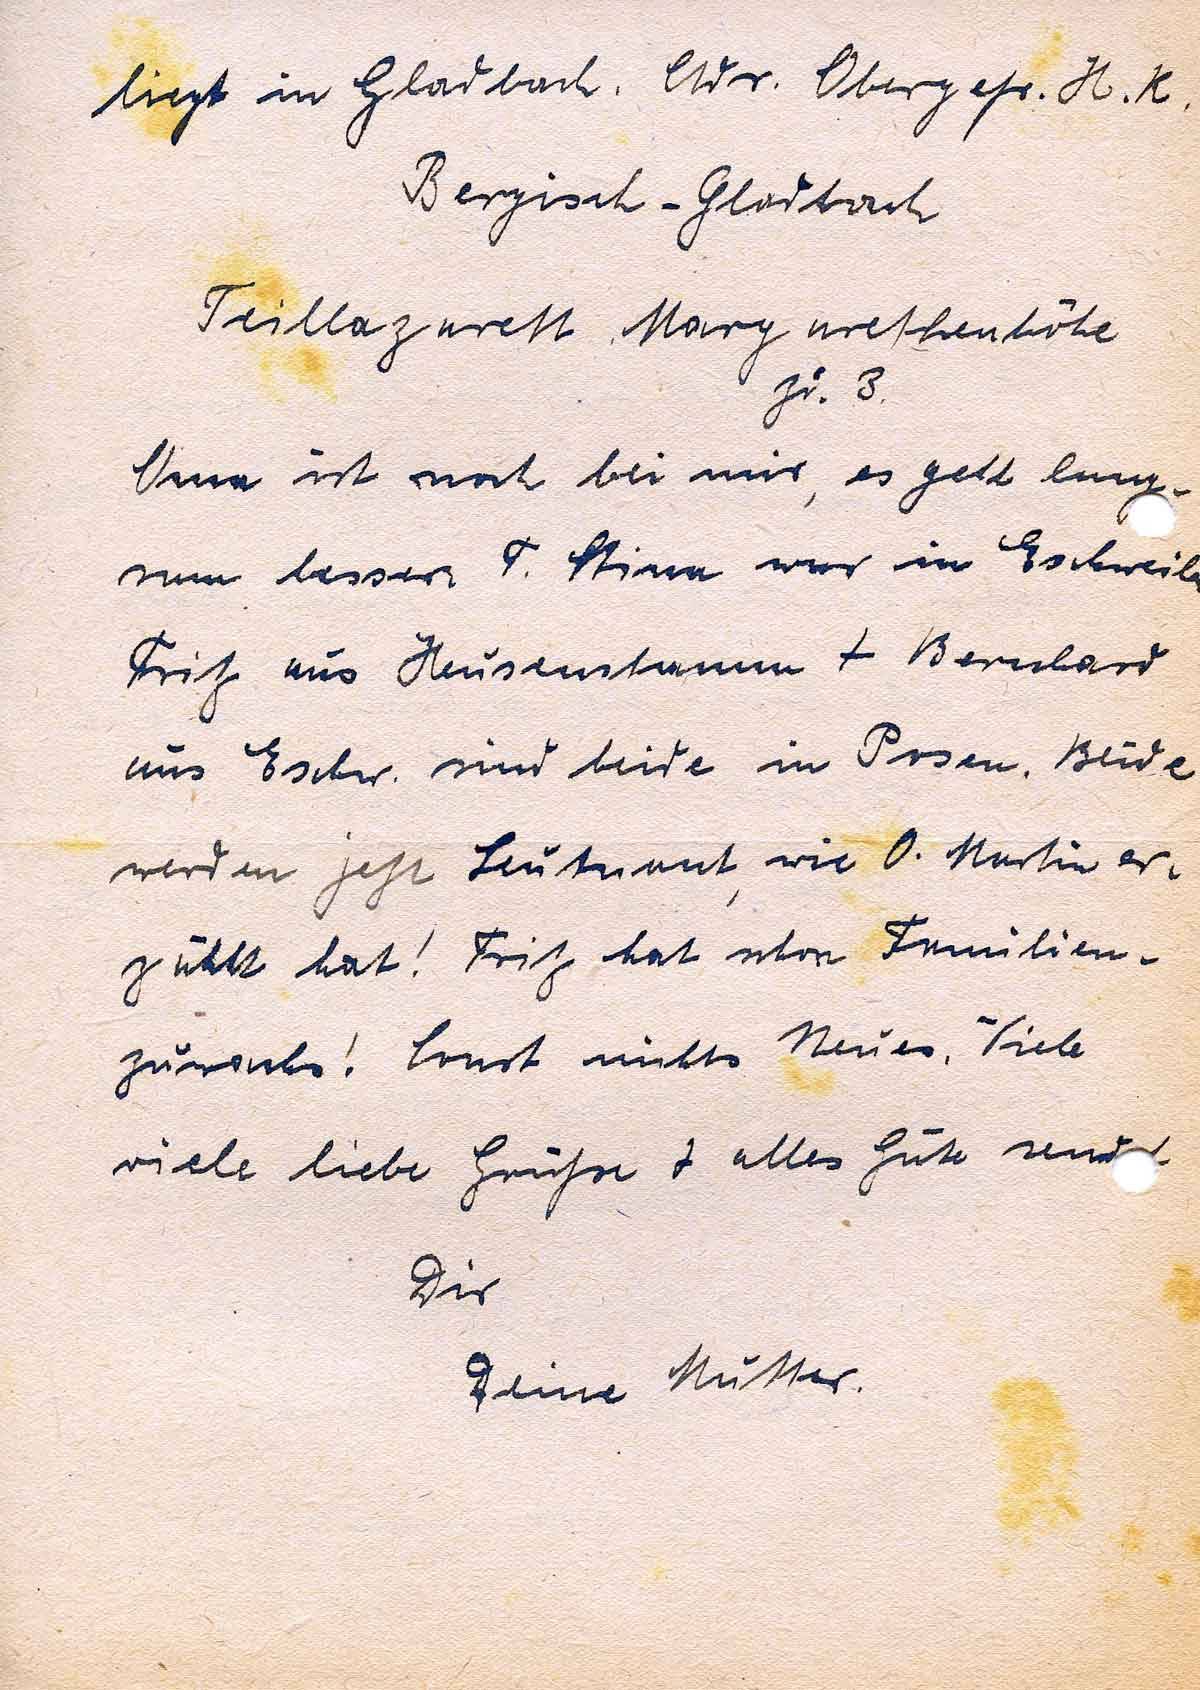 liegt in Gladbach. Adr. Obergefr. H. K.
Bergisch-Gladbach
Teillazarett Margarethenhöhe
Zi. 3.
Oma ist noch bei mir, es geht lang-
sam besser. T. Stina war in Eschweiler
Fritz aus Heusenstamm + Bernhard
aus Eschw. sind beide in Posen. Beide
werden jetzt Leutnant, wie O. Martin er-
zählt hat! Fritz hat schon Familien-
zuwachs! Sonst nichts Neues. Viele
viele liebe Grüße + alles Gute sendet
Dir
Deine Mutter.